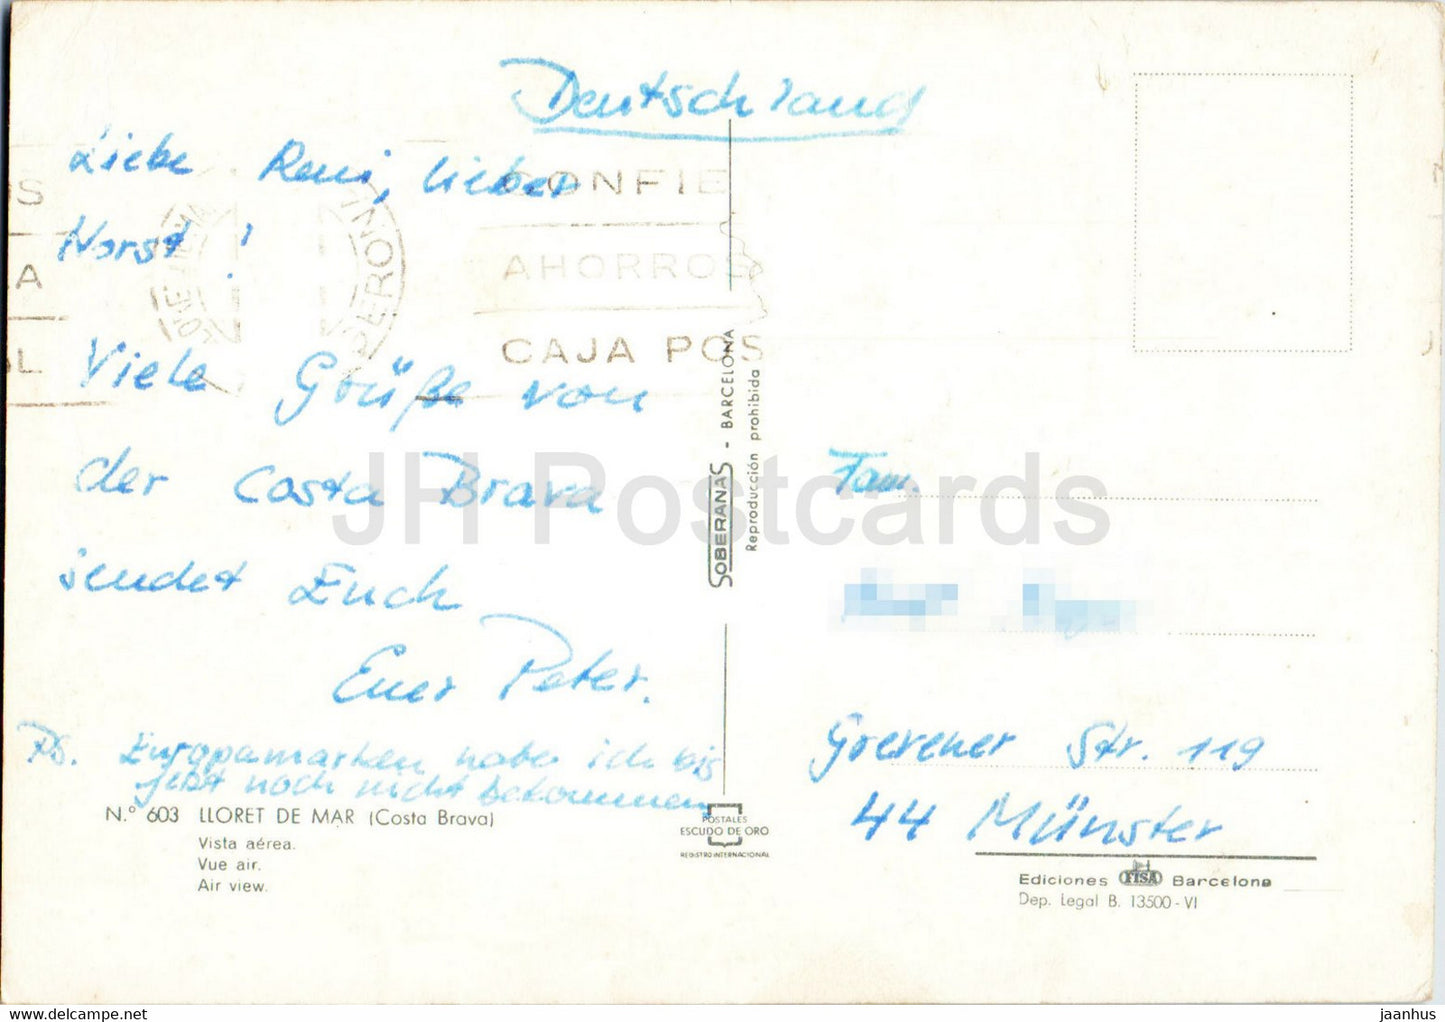 Deutschland
Liebe Reni, lieber
Horst!
Viele Grüße von
der Costa Brava
sendet Euch
Euer Peter.
PS. Europamarken habe ich bis
jetzt noch nicht bekommen
N.º 603 LLORET DE MAR (Costa Brava)
Vista aérea.
Vue air.
Air view.
CONFIE
AHORROS
CAJA POS
OS
A
AL
SOBERANAS - BARCELONA
Reproducción prohibida
POSTALES
ESCUDO DE ORO
REGISTRO INTERNACIONAL
Fam.
Grevener Str. 119
44 Münster
Ediciones FISA Barcelona
Dep. Legal B. 13500-VI
JH Postcards
jaanhus